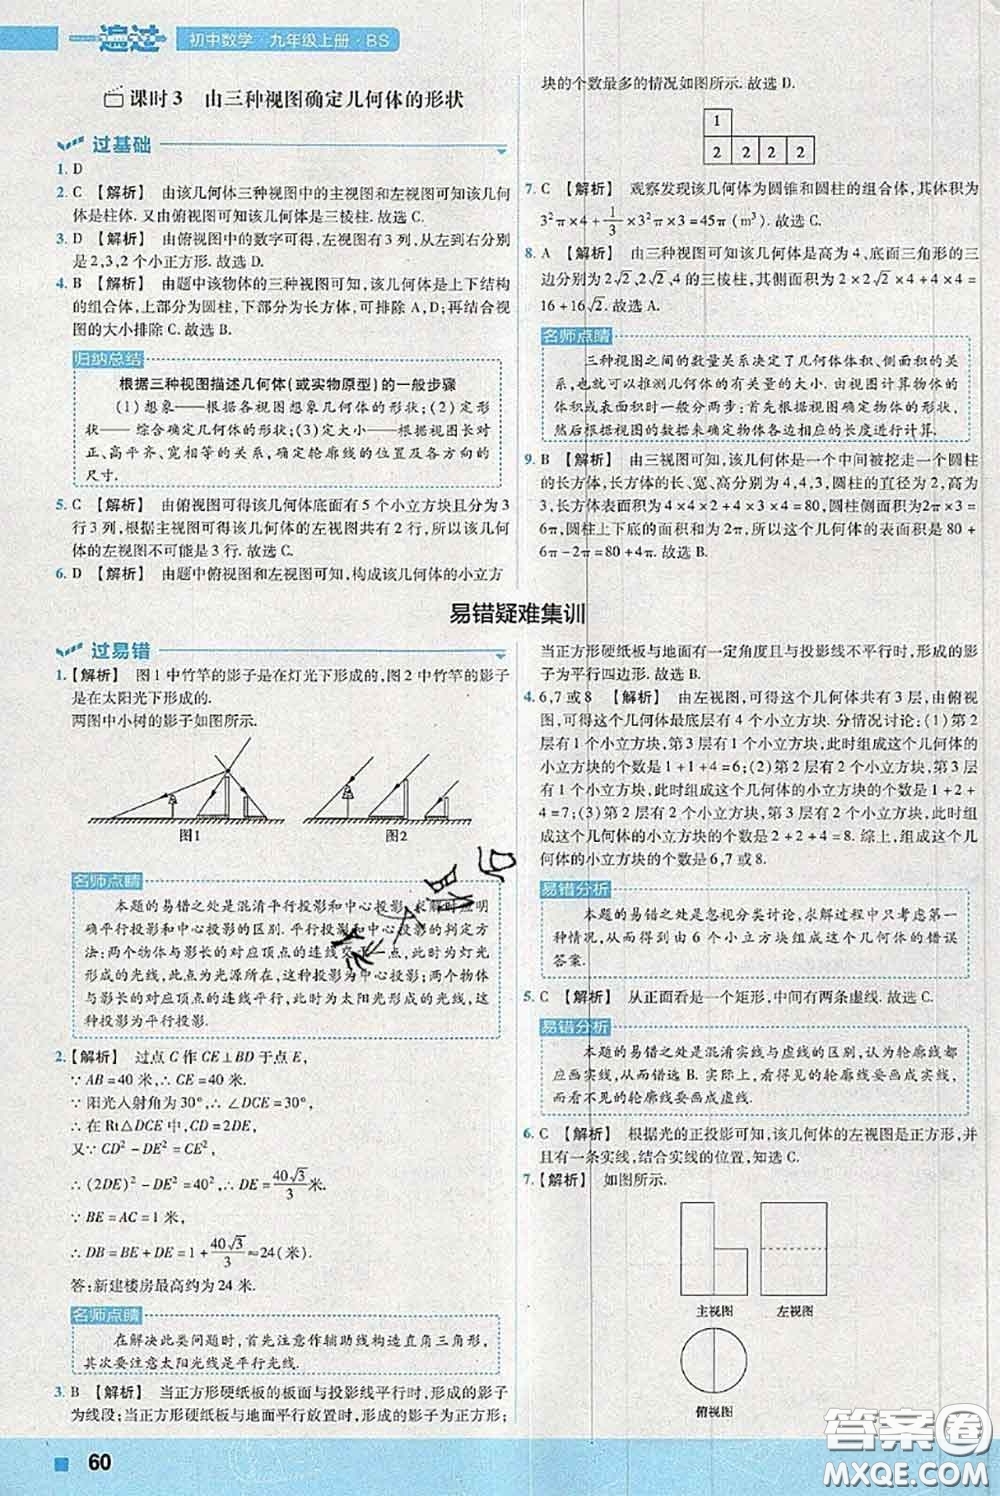 一遍过 初中数学·九年级上册·BS
课时3 由三种视图确定几何体的形状
过基础
1. D
2. C 【解析】 由该几何体三种视图中的主视图和左视图可知该几何
体是柱体.又由俯视图可知该几何体是三棱柱.故选C.
3. D 【解析】 由俯视图中的数字可得,左视图有3列,从左到右分别
是2,3,2个小正方形.故选D.
4. B 【解析】 由题中该物体的三种视图可知,该几何体是上下结构
的组合体,上部分为圆柱,下部分为长方体,可排除A,D;再结合视
图的大小排除C.故选B.
归纳总结
根据三种视图描述几何体(或实物原型)的一般步骤
(1)想象——根据各视图想象几何体的形状;(2)定形
状——综合确定几何体的形状;(3)定大小——根据“长对
正、高平齐、宽相等”的关系,确定轮廓线的位置及各方向的
尺寸.
5. C 【解析】 由俯视图可得该几何体底面有5个小立方块且分为3
行3列,根据主视图可得该几何体的左视图共有2行,所以该几何
体的左视图不可能是3行.故选C.
6. D 【解析】 由题中俯视图和左视图可知,构成该几何体的小立方
块的个数最多的情况如图所示.故选D.
1
2 2 2 2
7. C 【解析】 观察发现该几何体为圆锥和圆柱的组合体,其体积为
3²π×4+1/3×3²π×3=45π(m³).故选C.
8. A 【解析】 由三种视图可知该几何体是高为4、底面三角形的三
边分别为2√2、2√2、4的三棱柱,其侧面积为2×2√2×4+4×4=
16+16√2.故选A.
名师点睛
三种视图之间的数量关系决定了几何体体积、侧面积的关
系,也就可以推测几何体的有关量的大小.由视图计算物体的
体积或表面积时一般分两步:首先根据视图确定物体的形状,
然后根据视图的数据来确定物体各边相应的长度进行计算.
9. B 【解析】 由三视图可知,该几何体是一个中间被挖走一个圆柱
的长方体,长方体的长、宽、高分别为4,4,3,圆柱的直径为2,高为
3,长方体表面积为4×4×2+4×3×4=80,圆柱侧面积为2π×3=
6π,圆柱上下底的面积和为2π,所以这个几何体的表面积是80+
6π-2π=80+4π.故选B.
易错疑难集训
过易错
1. 【解析】 图1中竹竿的影子是在灯光下形成的,图2中竹竿的影子
是在太阳光下形成的.
两图中小树的影子如图所示.
图1 图2
名师点睛
本题的易错之处是混淆平行投影和中心投影,求解时应明
确平行投影和中心投影的区别.平行投影和中心投影的判定方
法:两个物体与影长的对应顶点的连线交于一点,此时为灯光
形成的光线,此点为光源所在,这种投影为中心投影;两个物体
与影长的对应顶点的连线平行,此时为太阳光形成的光线,这
种投影为平行投影.
2. 【解析】 过点C作CE⊥BD于点E,
∵AB=40米,∴CE=40米.
∵阳光入射角为30°,∴∠DCE=30°,
∴在Rt△DCE中,CD=2DE,
又∵CD²-DE²=CE²,
∴(2DE)²-DE²=40²,∴DE=40√3/3米.
∵BE=AC=1米,
∴DB=BE+DE=1+40√3/3≈24(米).
答:新建楼房最高约为24米.
名师点睛
在解决此类问题时,首先注意作辅助线构造直角三角形,
其次要注意太阳光线是平行光线.
3. B 【解析】 当正方形硬纸板的板面与投影线平行时,形成的影子
为线段;当正方形硬纸板与地面平行放置时,形成的影子为正方形;
当正方形硬纸板与地面有一定角度且与投影线不平行时,形成的影
子为平行四边形.故选B.
4. 6,7或8 【解析】 由左视图,可得这个几何体共有3层,由俯视
图,可得这个几何体最底层有4个小立方块.分情况讨论:(1)第2
层有1个小立方块,第3层有1个小立方块,此时组成这个几何体的
小立方块的个数是1+1+4=6;(2)第2层有2个小立方块,第3层
有1个小立方块,此时组成这个几何体的小立方块的个数是1+2+
4=7;(3)第2层有2个小立方块,第3层有2个小立方块,此时组
成这个几何体的小立方块的个数是2+2+4=8.综上,组成这个几
何体的小立方块的个数是6,7或8.
易错分析
本题的易错之处是忽视分类讨论,求解过程中只考虑第一
种情况,从而得出由6个小立方块组成这个几何体的错误
答案.
5. C 【解析】 从正面看是一个矩形,中间有两条虚线.故选C.
易错分析
本题的易错之处是混淆实线与虚线的区别,认为轮廓线都
应画实线,从而错选B.实际上,看得见的轮廓线要画成实线,
而看不见的轮廓线要画成虚线.
6. C 【解析】 根据光的正投影可知,该几何体的左视图是正方形,并
且有一条实线,结合实线的位置,知选C.
7. 【解析】 如图所示.
主视图 左视图
俯视图
60
答案圈
MXQE.COM